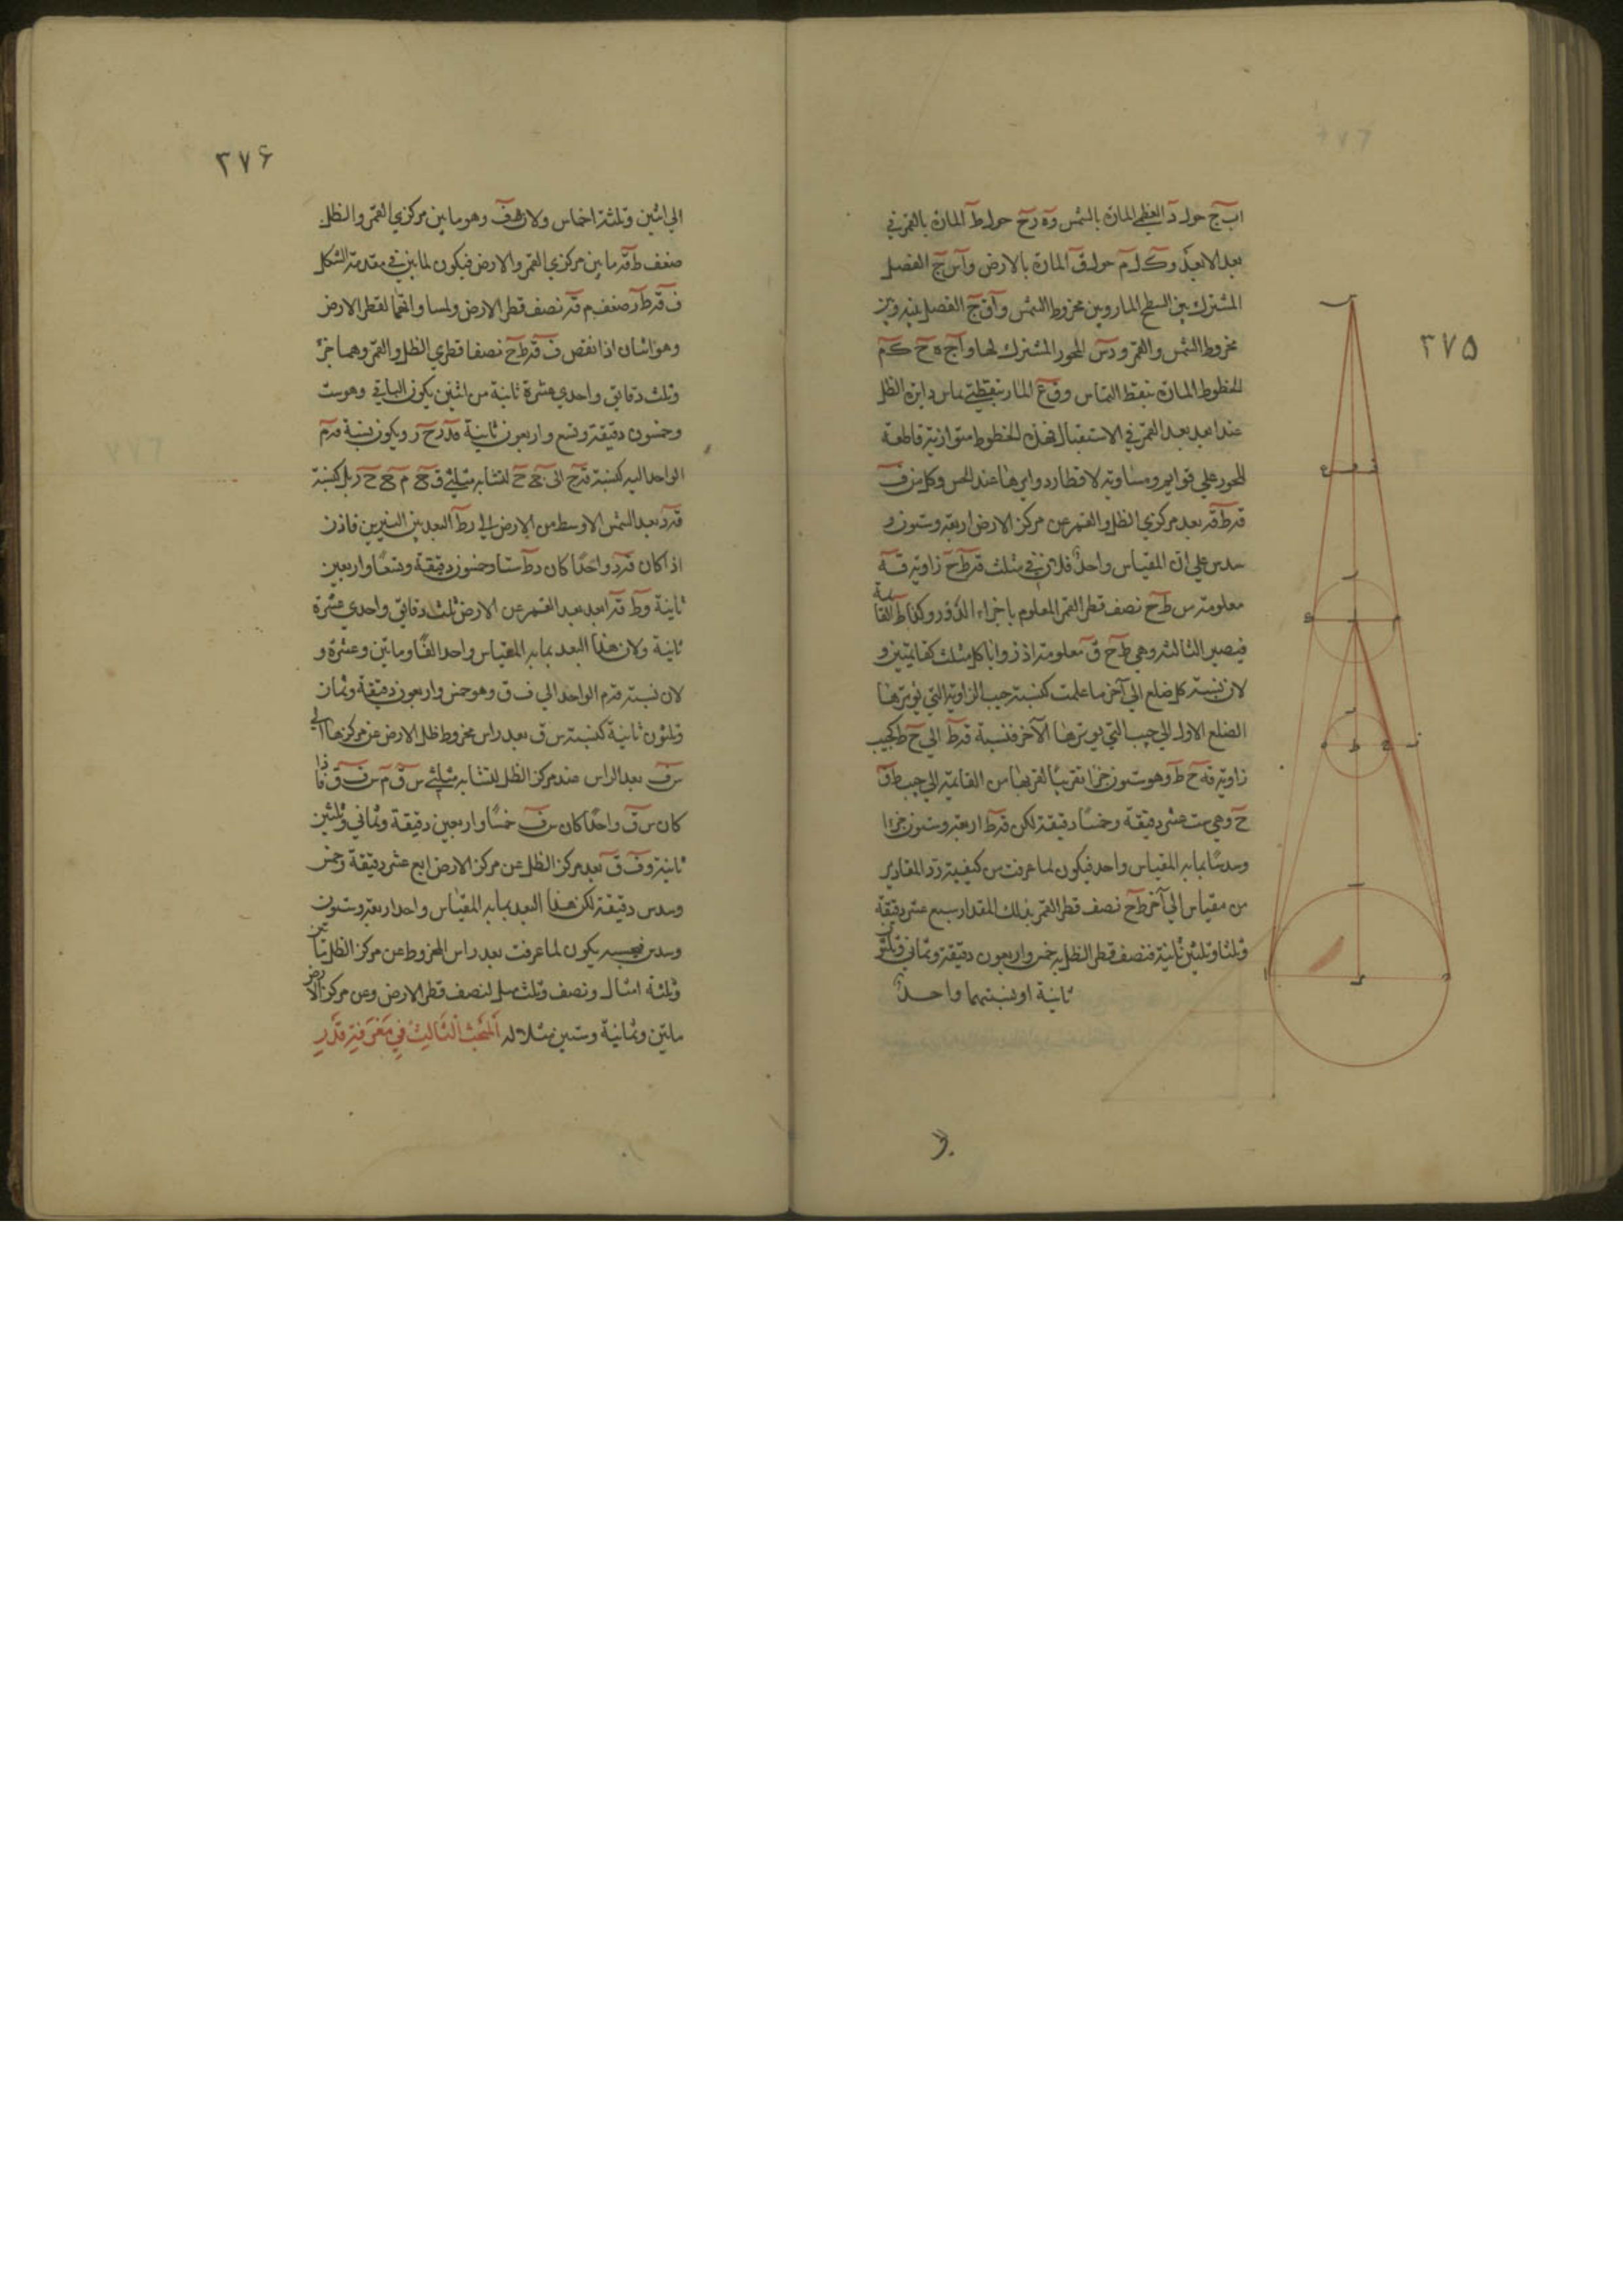 ٣٧٥
اب ج حول د العظمى المارة بالشمس و ه رح حول ط المارة بالقمر في
بعد الابعد و ك ل م حول ق المارة بالارض و اس ج الفصل
المشترك بين السطح المار وبين مخروط الشمس و اق ج الفصل بينه وبين
مخروط الشمس والقمر و دس المحور المشترك لها و اج ه ح ك م
الخطوط المارة بنقط التماس و ف ع المار بنقطتي تماس دايرة الظل
عند ابعد بعد القمر في الاستقبال فهذه الخطوط متوازية قاطعة
للمحور على قوايم ومساوية لاقطار دوايرها عند الحس وكل من ف
ق ط ق بعد مركزي الظل والقمر عن مركز الارض اربعة وستون و
سدس على ان المقياس واحد فلان في مثلث ق ط ح زاوية ق
معلومة من ط ح نصف قطر القمر المعلوم باجزاء الدور وكذا ط القائمة
فيصير الثالثة وهي ط ح ق معلومة اذ زوايا كل مثلث كقايمتين و
لان نسبة كل ضلع الى آخر ما علمت كنسبة جيب الزاوية التي يوترها
الضلع الاول الى جيب التي يوترها الآخر فنسبة ق ط الى ح ط كجيب
زاوية ق ح ط وهو ستون جزا تقريبا لقربها من القايمة الى جيب ط ق
ح وهي ست عشر دقيقة وخمسا دقيقة لكن ق ط اربعة وستون جزءا
وسدسا بما به المقياس واحد فيكون لما عرفت من كيفية رد المقادير
من مقياس الى آخر ط ح نصف قطر القمر بذلك المقدار سبع عشر دقيقة
وثلثا وثلثين ثانية فنصف قطر الظل به خمس واربعون دقيقة وثماني وثلثون
ثانية او نسبتهما واحدة
٣٧۶
الى اثنين وثلثة اخماس ولان ط ف وهو ما بين مركزي القمر والظل
ضعف ط ق ما بين مركزي القمر والارض فيكون لما بين في مقدمة الشكل
ف ق ط ر ضعف م ق نصف قطر الارض ولمساواتهما لقطر الارض
وهو اثنان اذا نقص ف ق ط ح نصفا قطري الظل والقمر وهما جزء
وثلث دقايق واحدي عشرة ثانية من اثنين يكون الباقي وهو ست
وخمسون دقيقة وتسع واربعون ثانية قدر ح ر ويكون نسبة ق م
الواحد اليه كنسبة
ق د بعد الشمس الاوسط من الارض الى د ط البعد بين النيرين فاذن
اذا كان ق د واحدا كان د ط ستا وخمسون دقيقة وتسعا واربعين
ثانية و ط ق ابعد بعد القمر عن الارض ثلث دقايق واحدي عشرة
ثانية ولان هذا البعد بما به المقياس واحد الفا ومائتين وعشرة و
لان نسبة ق م الواحد الى ف ق وهو خمس واربعون دقيقة وثمان
وثلثون ثانية كنسبة س ق بعد راس مخروط ظل الارض عن مركزها الى
س ف بعد الراس عند مركز الظل لتشابه مثلثي س ق م س ف ق فاذا
كان س ق واحدا كان س ف خمسا واربعين دقيقة وثماني وثلثين
ثانية و ف ق بعد مركز الظل عن مركز الارض اربع عشر دقيقة وخمس
وسدس دقيقة لكن هذا البعد بما به المقياس واحد اربعة وستون
وسدس فيكون لما عرفت بعد راس المخروط عن مركز الظل مأتين
وثلثة امثال ونصف وثلث مثل لنصف قطر الارض وعن مركز الارض
مأتين وثمانية وستين مثلا له المبحث الثالث في معرفة قدر